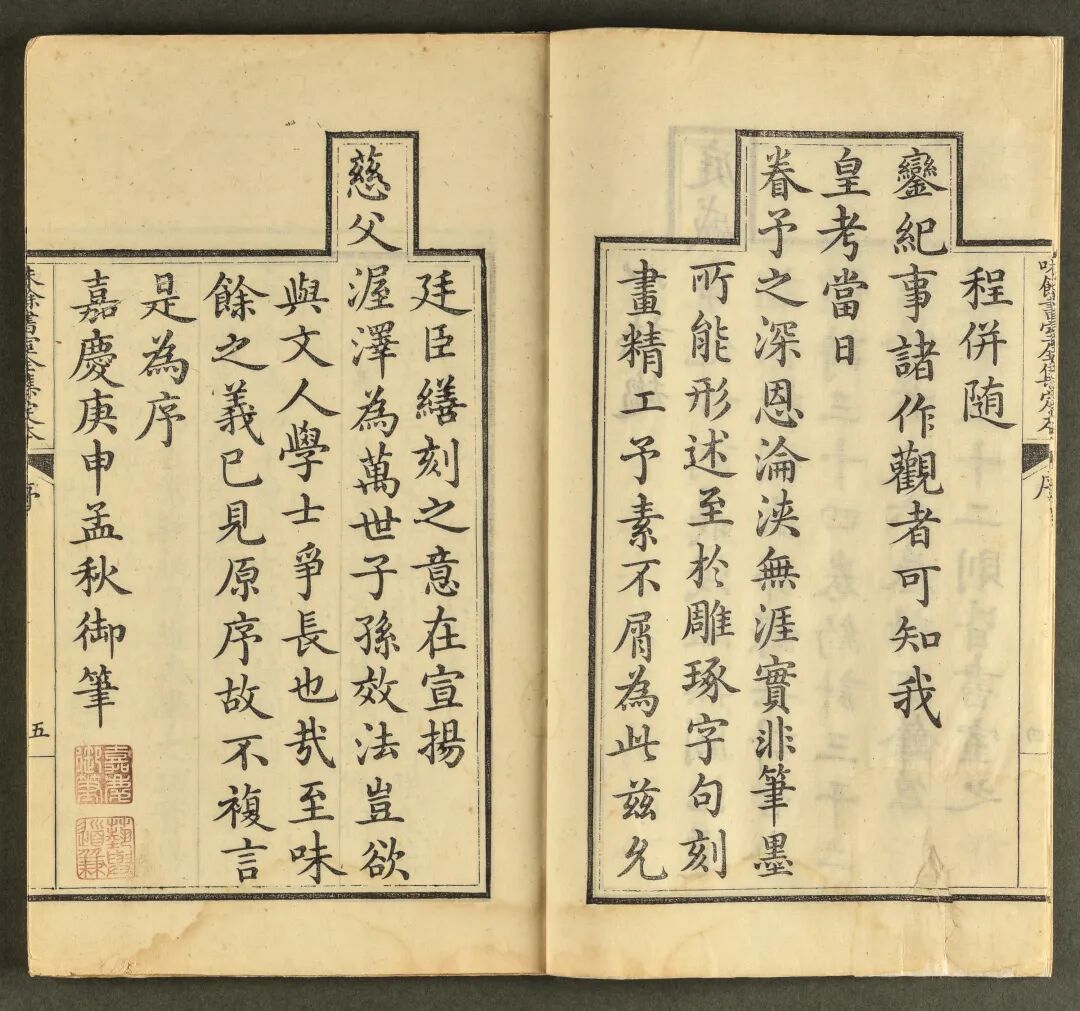 程併随
鑾紀事諸作觀者可知我
皇考當日
眷予之深恩淪浹無涯實非筆墨
所能形述至於雕琢字句刻
畫精工予素不屑為此茲允
廷臣繕刻之意在宣揚
慈父
渥澤為萬世子孫效法豈欲
與文人學士爭長也㢤至味
餘之義已見原序故不複言
是為序
嘉慶庚申孟秋御筆
嘉慶
御筆
味餘書室全集定本
序
四
味餘書室全集定本
序
五